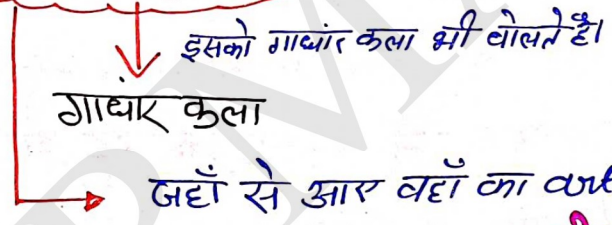 इसको गाधांर कला भी बोलते है।
गाधांर कला
जहाँ से आए वहाँ का art